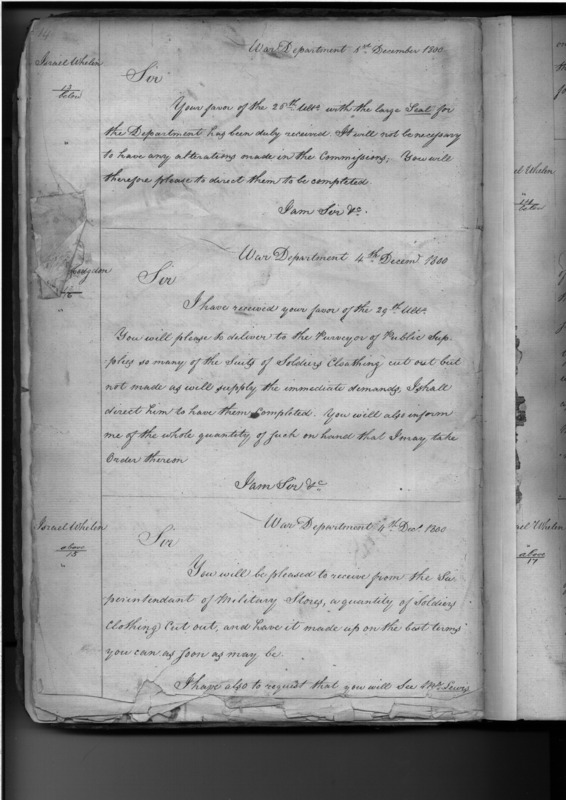 14
War Department 1st December 1800
Israel Whelen
Sir
Your favor of the 28th Ulto with the large Seal for
the Department has been duly received. It will not be necessary
to have any alterations made in the Commissions; You will
therefore please to direct them to be completed.
I am Sir &c.
War Department 4th Decem 1800
Hodgdon
Sir
I have received your favor of the 29th Ulto.
You will please to deliver to the Purveyor of Public Sup-
-plies so many of the Suits of Soldiers Cloathing cut out but
not made as will supply the immediate demands, I shall
direct him to have them Completed. You will also inform
me of the whole quantity of such on hand that I may take
Order therein
I am Sir &c
War Department 4th Decr 1800
Israel Whelen
above
15
Sir
You will be pleased to receive from the Su-
perintendant of Military Stores, a quantity of Soldiers
Clothing Cut out, and have it made up on the best terms
you can as soon as may be.
I have also to request that you will See Mr. Lewis
Whelen
Whelen
above
17